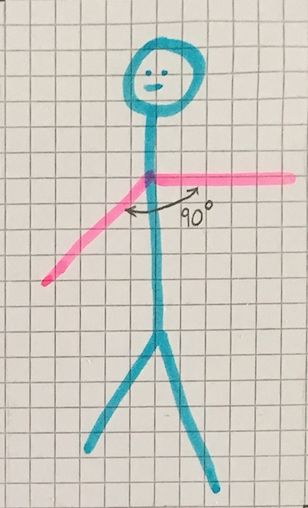 90°